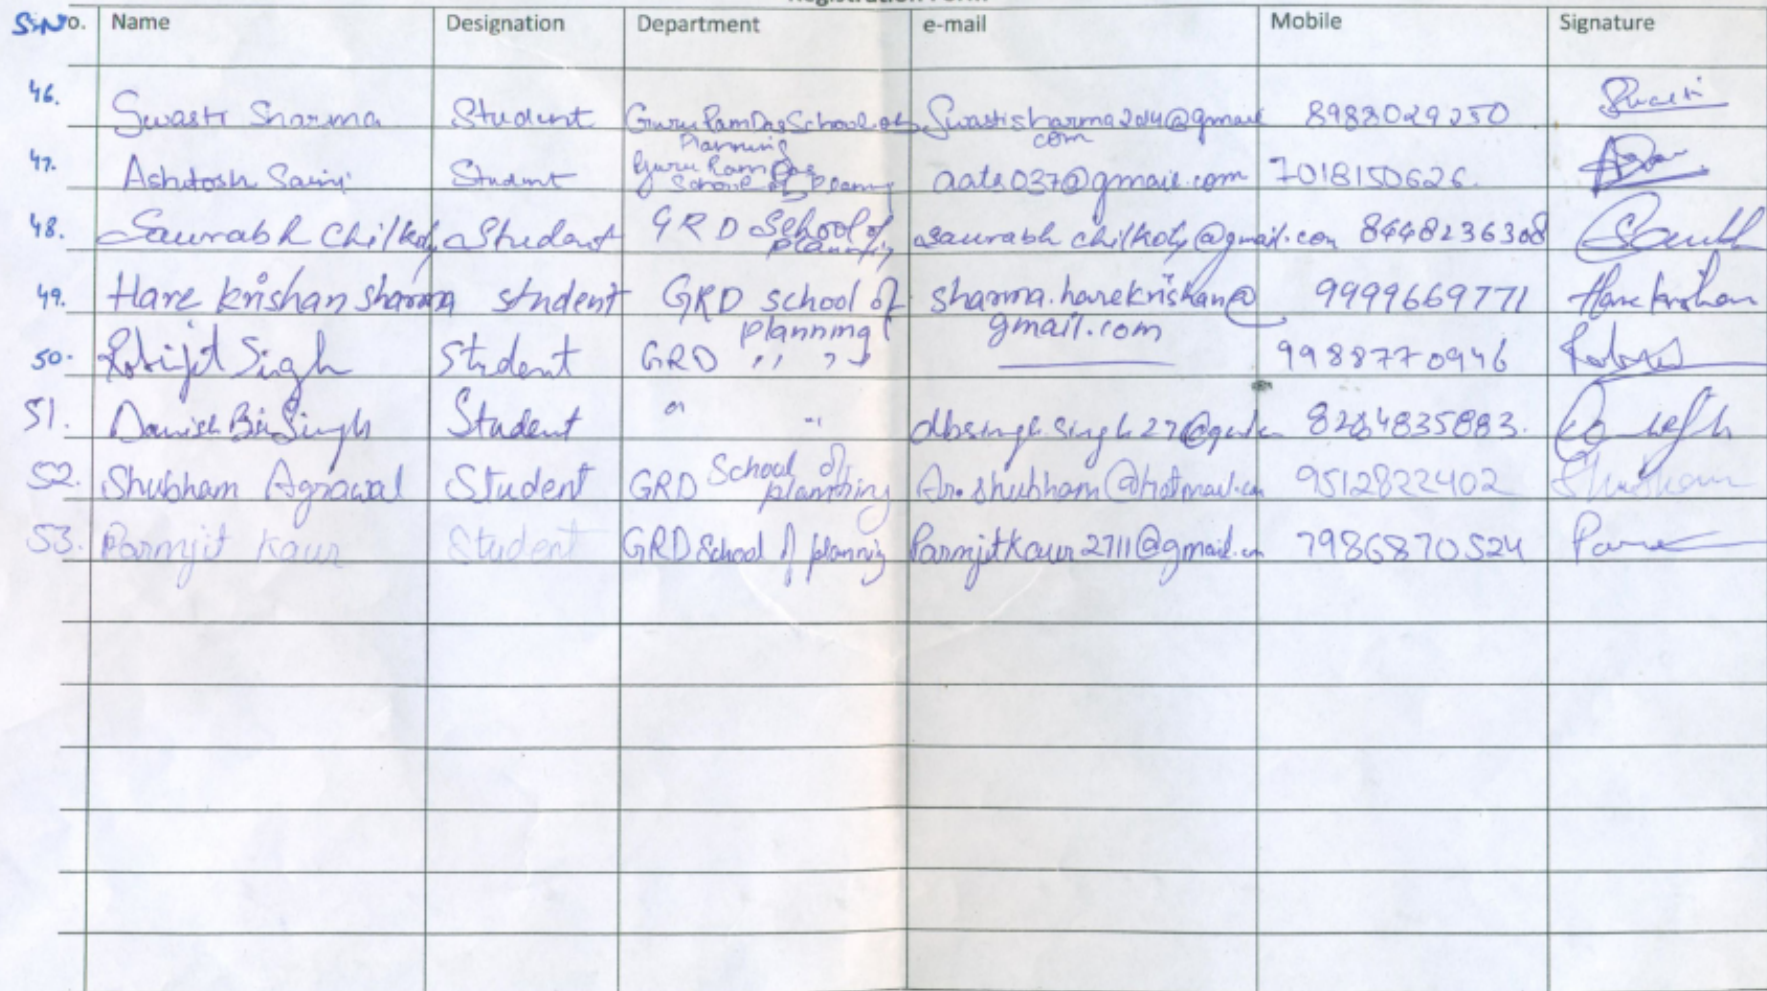 Registration Form
S.No. Name Designation Department e-mail Mobile Signature
46. Swasti Sharma Student Guru Ram Das School of Planning Swastisharma2014@gmail.com 8988029250 Swasti
47. Ashutosh Saini Student Guru Ram Das School of Planning aats037@gmail.com 7018150626.
48. Saurabh Chilkoty Student GRD School of planning saurabh chilkoty@gmail.com 8448236308
49. Hare krishan sharma student GRD school of planning sharma.harekrishan@gmail.com 9999669771 Hare krishan
50. Robijit Singh Student GRD ,, ,, 9988770946
51. Danish Bir Singh Student " " 8284835883.
52. Shubham Agrawal Student GRD School of planning Ar.shubham@hotmail.com 9512822402 Shubham
53. Parmjit Kaur Student GRD School of planning Parmjitkaur2711@gmail.com 7986870524